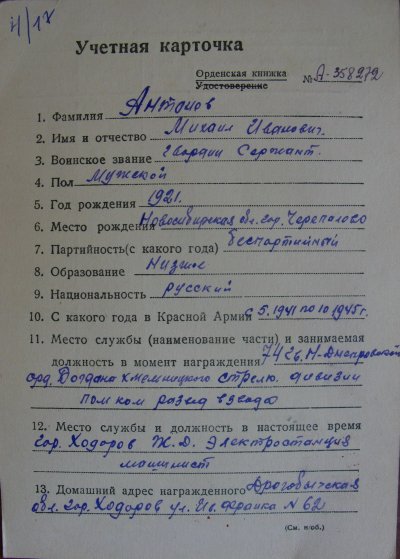 Учетная карточка
Орденская книжка
Удостоверение № А-358272
1. Фамилия Антонов
2. Имя и отчество Михаил Иванович.
3. Воинское звание Гвардии Сержант.
4. Пол Мужской
5. Год рождения 1921.
6. Место рождения Новосибирская обл. гор. Черепаново
7. Партийность(с какого года) беспартийный
8. Образование Низшее
9. Национальность русский
10. С какого года в Красной Армии с 5.1941 по 10 1945г.
11. Место службы (наименование части) и занимаемая
должность в момент награждения
орд. Богдана Хмельницкого стрелк. дивизии
пом ком развед взвода
12. Место службы и должность в настоящее время
гор. Ходоров Ж.Д. Электростанция
машинист
13. Домашний адрес награжденного Дрогобычская
обл. гор. Ходоров ул. Ив. Франка N 62
(См. н/об.)